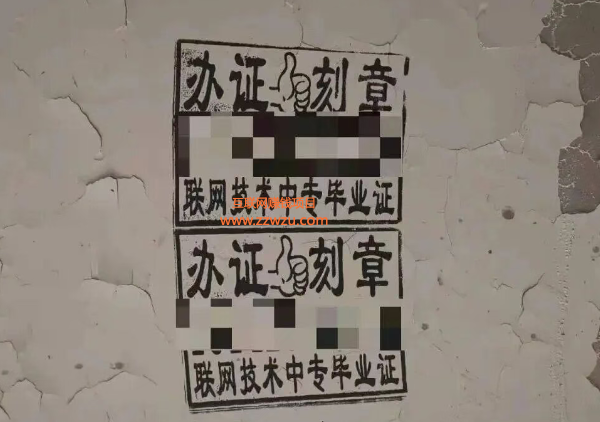 办证 刻章
联网技术中专毕业证
互联网赚钱项目
www.zzwzu.com
办证 刻章
联网技术中专毕业证